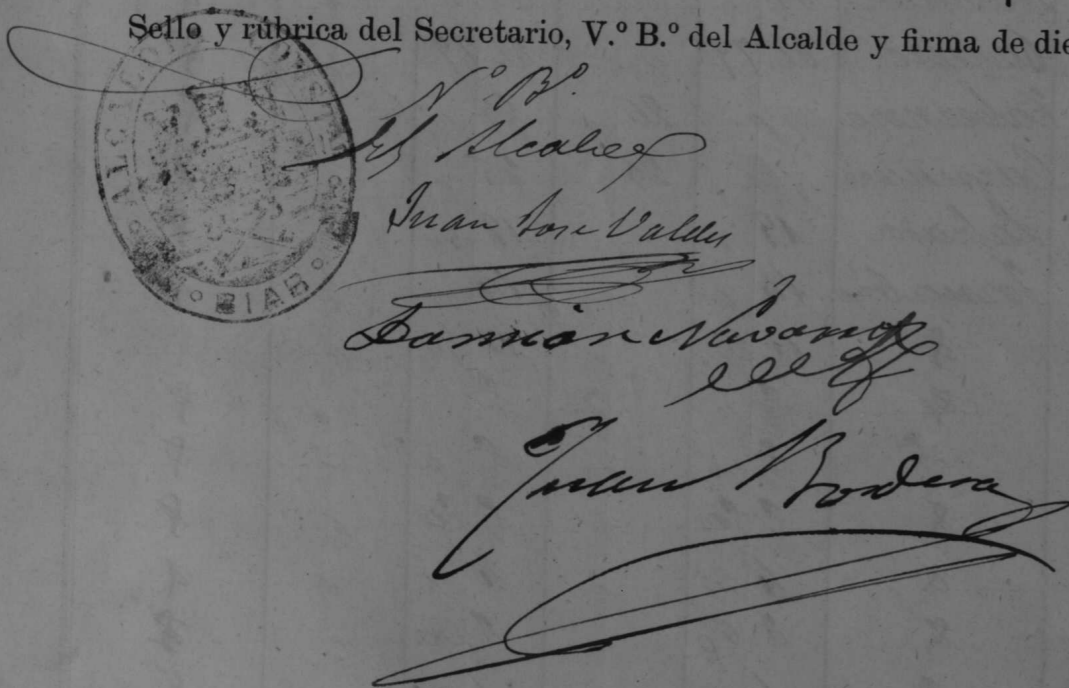 Sello y rúbrica del Secretario, V.º B.º del Alcalde y firma de die
V.º B.º
El Alcalde
Juan Jose Valdes
Damian Navarro
Juan Bordera
ALCALDIA
BIAR